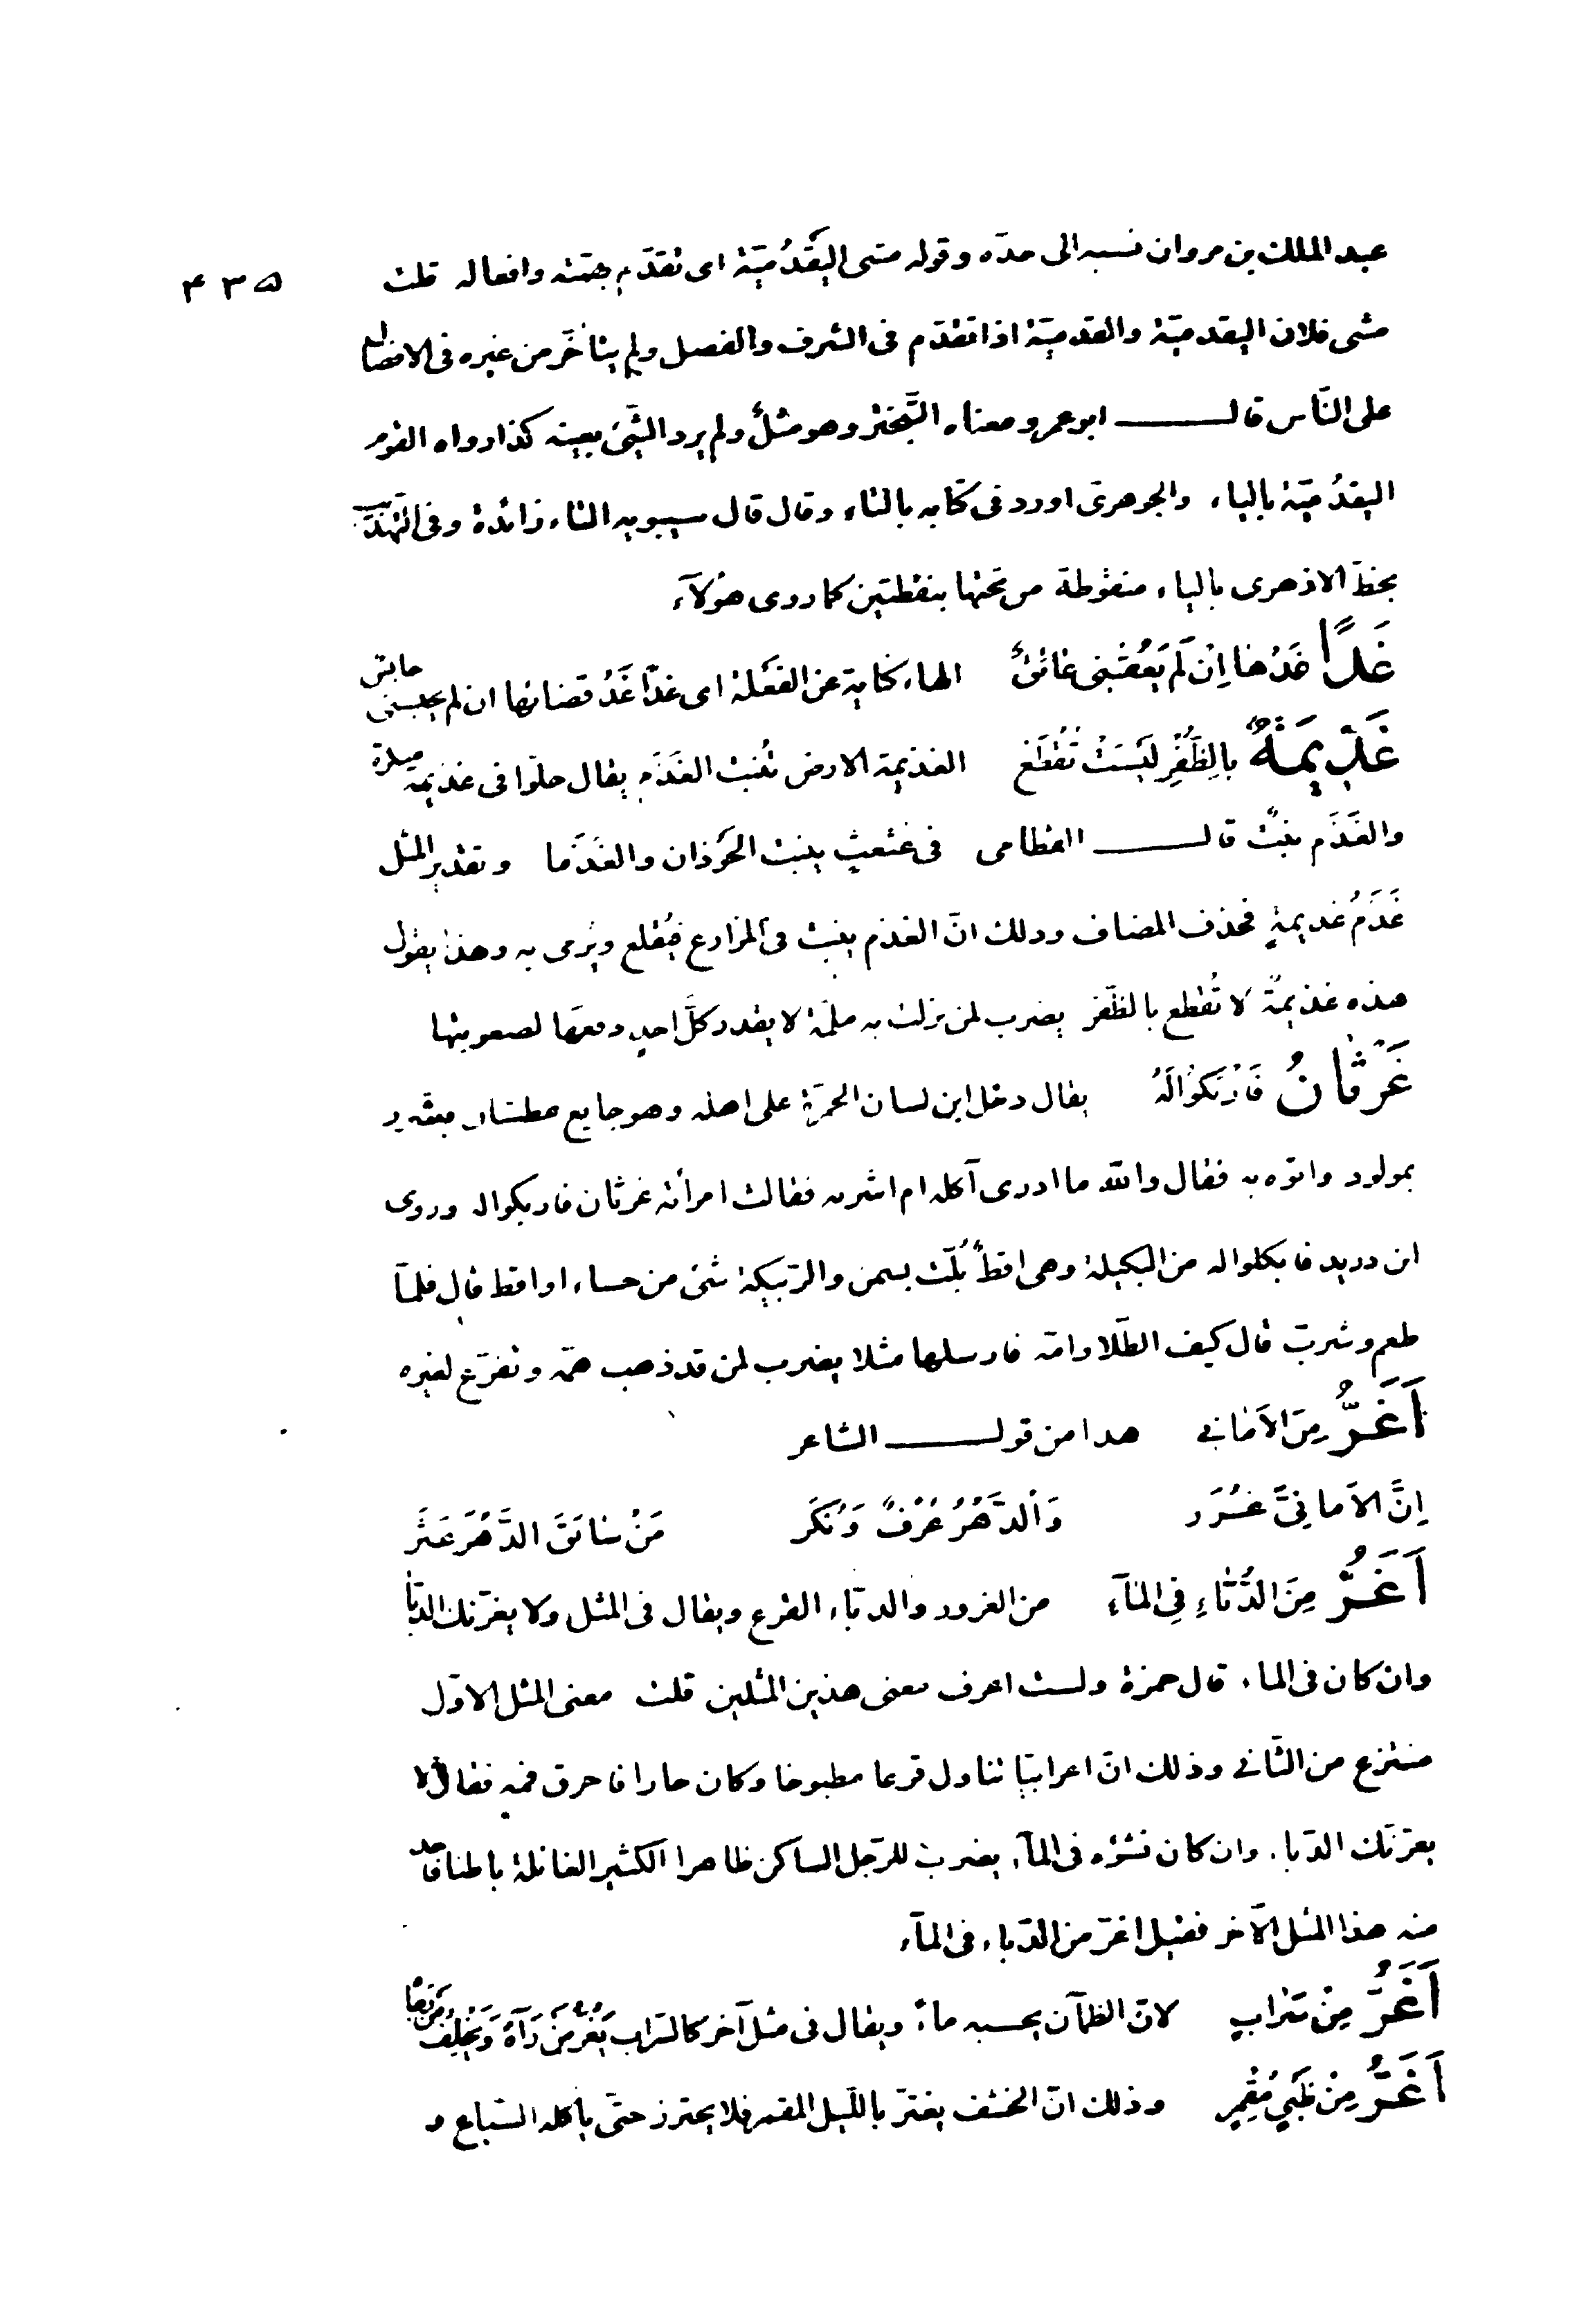 ۴۳۵
عبد الملك بن مروان نسبه الى جدّه وقوله مشى اليَقْدُميّة اى تقدّم بهمّته وافعاله قلت
مشى فلان اليقدميّة والقدميّة اذا تقدّم فى الشرف والفصل ولم يتأخّر من غيره فى الافضال
على النّاس قال ابو عمرو معناه التّبختر وهو مثلٌ ولم يرد الشّىء بعينه كذا رواه القوم
اليقدُميّة بالياء والجوهرىّ اورد فى كتابه بالتاء وقال قال سيبويه التاء زائدة وفى التهذيب
بخطّ الازهرى بالياء منقوطة من تحتها بنقطتين كما روى هؤلآء
غَدًا غَدُها اِنْ لَم يَعُقْنِى عائقٌ الهاء كناية عن الفَعْلة اى غدًا غَدُ قضائها ان لم يحبسنى حابس
غَذِيمَةٌ بِالظُّفُرِ لَيْسَتْ تُقْطَع الغذيمة الارض تُنبت الغَذَم يقال حلّوا فى غذيمة
والغَذَم نبتٌ قال القطامى فى عثعثٍ ينبت الحَوْذان والغَذَما وتقدير المثل
غَذَمُ غذيمةٍ فحذف المضاف وذلك انّ الغذم ينبت فى المزارع فيُقلع ويُرمى به وهذا يقول
هذه غذيمةٌ لا تُقطع بالظفر يضرب لمن نزلت به ملمّة لا يقدر كلّ احدٍ دفعها لصعوبتها
غَرْثانُ فَارْبُكُوا لَهُ يقال دخل ابن لسان الحمرّة على اهله وهو جايع عطشان فبشّر
بمولود واتوه به فقال والله ما ادرى آكله ام اشربه فقالت امرأته غرثان فاربكوا له وروى
ابن دريد فابكلوا له من البكيلة وهى اقطٌ يُلتّ بسمن والرّبيكة شىء من حساء او اقط قال فلمّا
طعم وشرب قال كيف الطّلا وامّه فارسلها مثلا يضرب لمن قد ذهب همّه وتفرّغ لغيره
اَغَرُّ مِنَ الاَمانِي هذا من قول الشاعر
اِنَّ الاَمانِيَّ غَرَر وَالدَّهْرُ عُرْفٌ وَنُكَر مَنْ سابَقَ الدَّهْرَ عَثَر
اَغَرُّ مِنَ الدُّبّاءِ فِي المآءِ من الغرور والدبّاء القرع ويقال فى المثل ولا يغرّنك الدبّا
وان كان فى الماء قال حمزة ولست اعرف معنى هذين المثلين قلت معنى المثل الاوّل
منتزع من الثّانى وذلك انّ اعرابيّا تناول قرعا مطبوخا وكان حارا فاحرق فمه فقال لا
يغرّنك الدبا، وان كان نشؤه فى المآء يضرب للرّجل الساكن ظاهرا الكثير الغائلة باطنا فاخذ
منه هذا المثل الآخر فقيل اغرّ من الدّباء فى المآء
اَغَرُّ مِنْ سَرابٍ لانّ الظمآن يحسبه ماءً ويقال فى مثل آخر كالسّراب يَغُرُّ مَنْ رَآهُ وَيُخْلِفُ مَنْ رَجاهُ
اَغَرُّ مِنْ ظَبْيٍ مُقْمِرٍ وذلك انّ الخشف يغترّ باللّيل المقمر فلا يحترز حتّى ياكله السّباع و